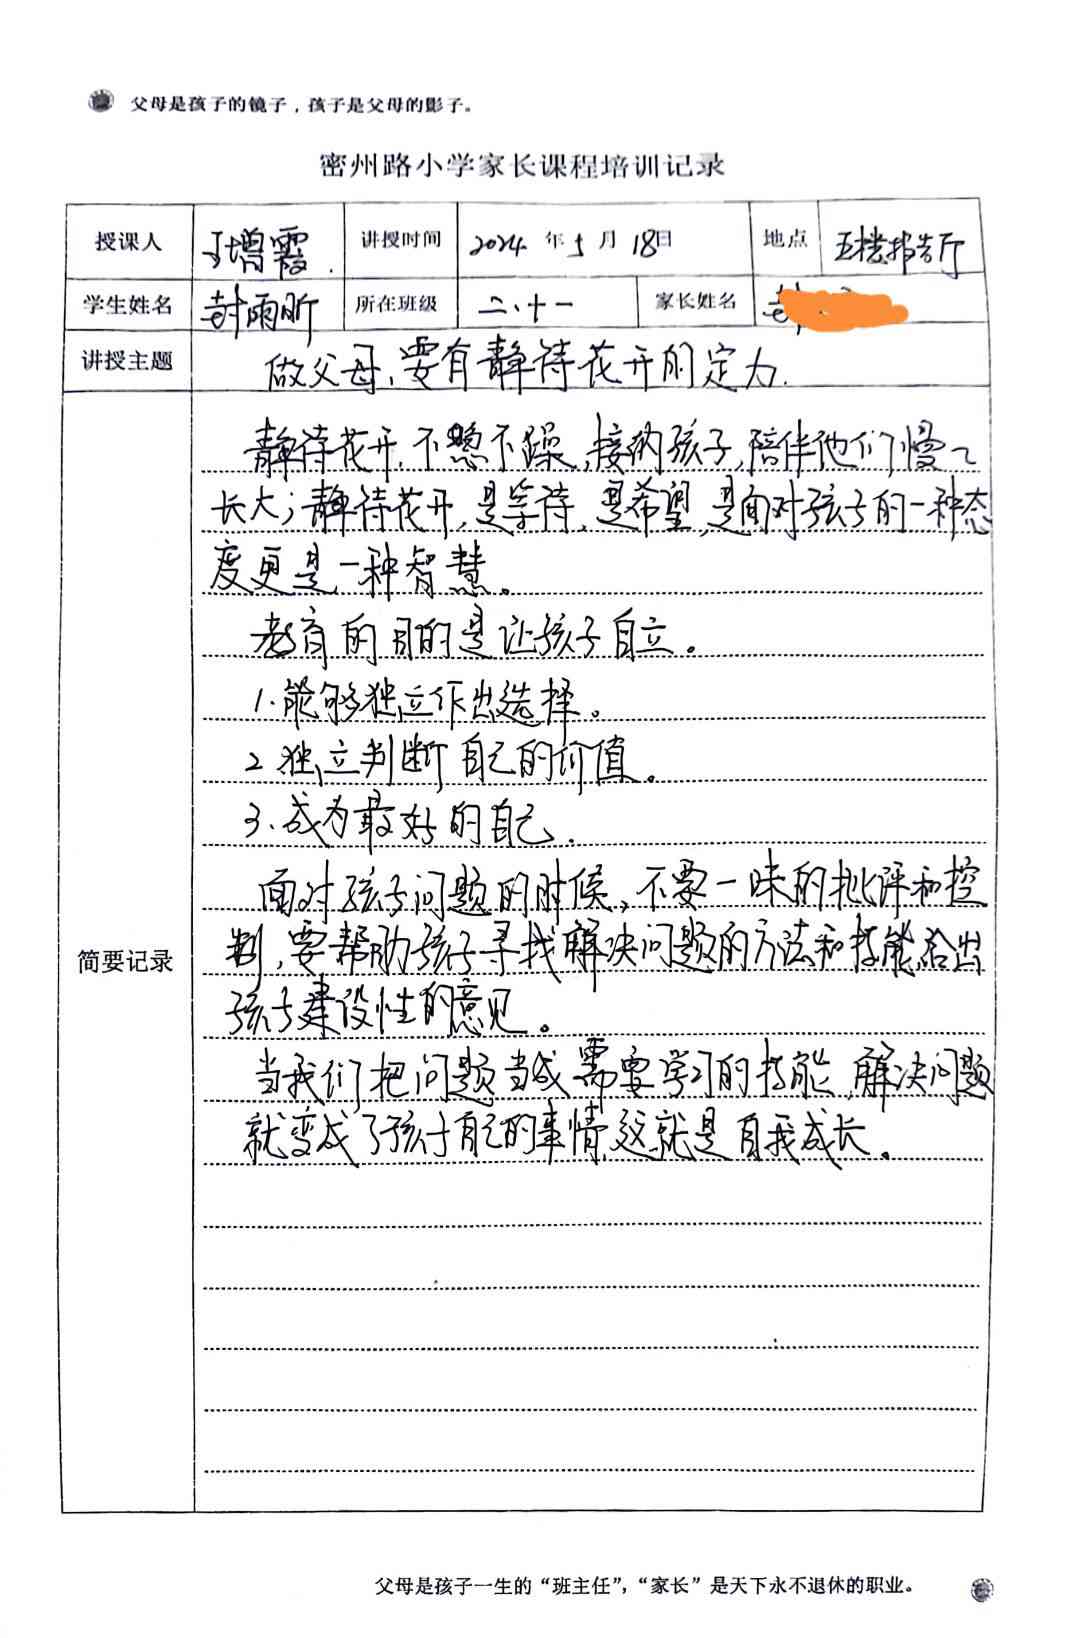 父母是孩子的镜子，孩子是父母的影子。
密州路小学家长课程培训记录
授课人 于增霞. 讲授时间 2024 年 5 月 18日 地点 五楼报告厅
学生姓名 封雨昕 所在班级 二、十一 家长姓名
讲授主题 做父母、要有静待花开的定力.
静待花开,不急不躁,接纳孩子,陪伴他们慢慢
长大；静待花开,是等待,是希望,是面对孩子的一种态
度更是一种智慧。
教育的目的是让孩子自立。
1.能够独立作出选择。
2 独立判断自己的价值。
3.成为最好的自己.
面对孩子问题的时候,不要一味的批评和控
简要记录
制,要帮助孩子寻找解决问题的方法和技能,给出
孩子建设性的意见。
当我们把问题当成需要学习的技能,解决问题
就变成了孩子自己的事情,这就是自我成长。
父母是孩子一生的“班主任”，“家长”是天下永不退休的职业。